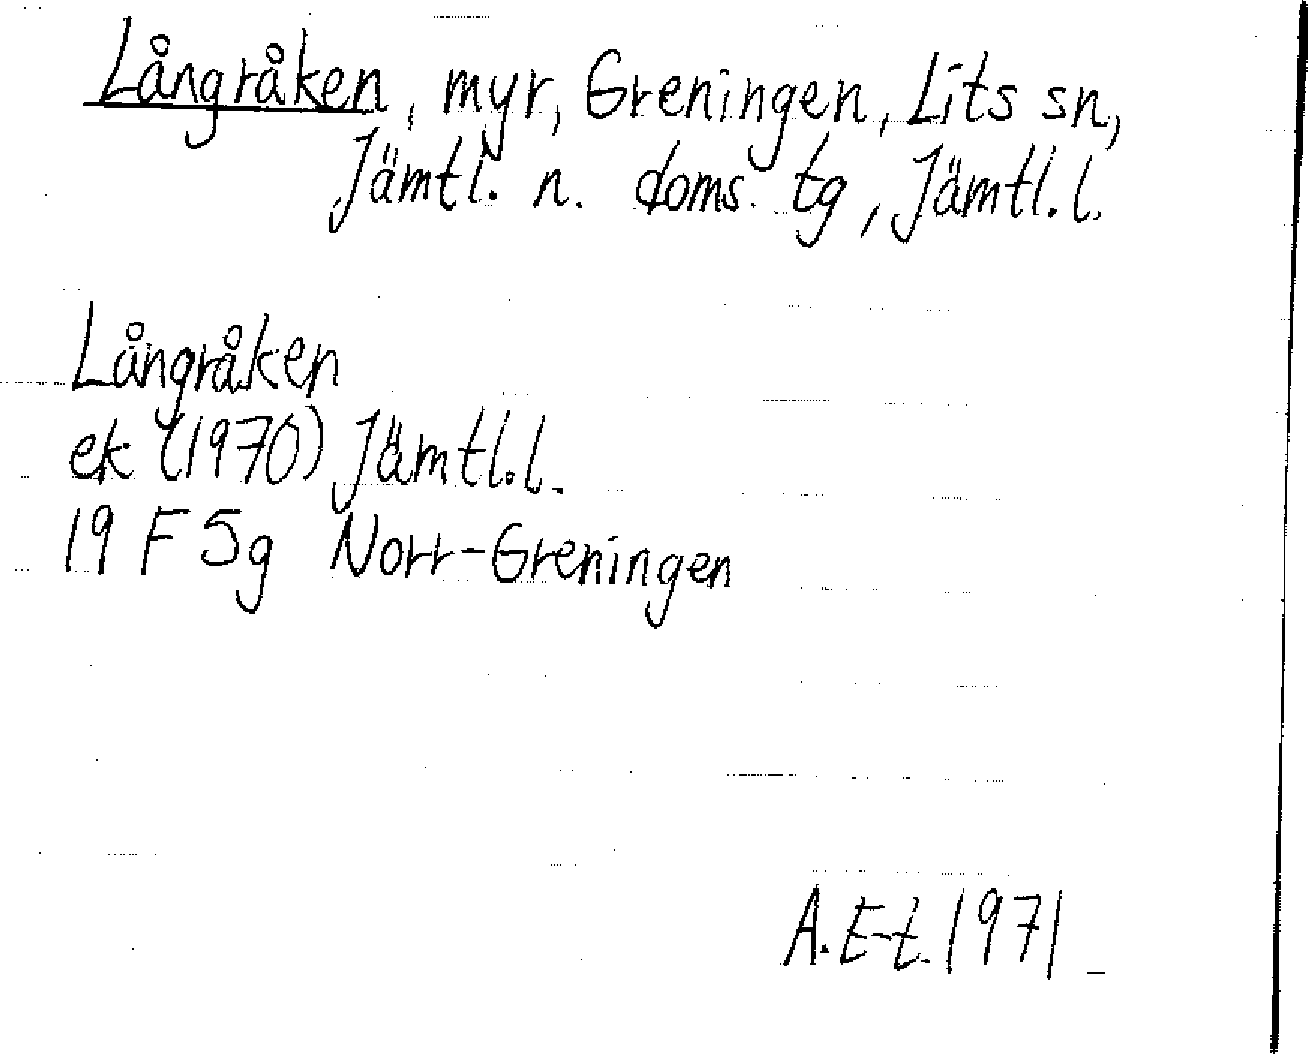 Långråken, myr, Greningen, Lits sn,
Jämtl. n. doms. tg, Jämtl.l.
Långråken
ek (1970) Jämtl.l.
19 F 5g Norr-Greningen
A. E-t. 1971